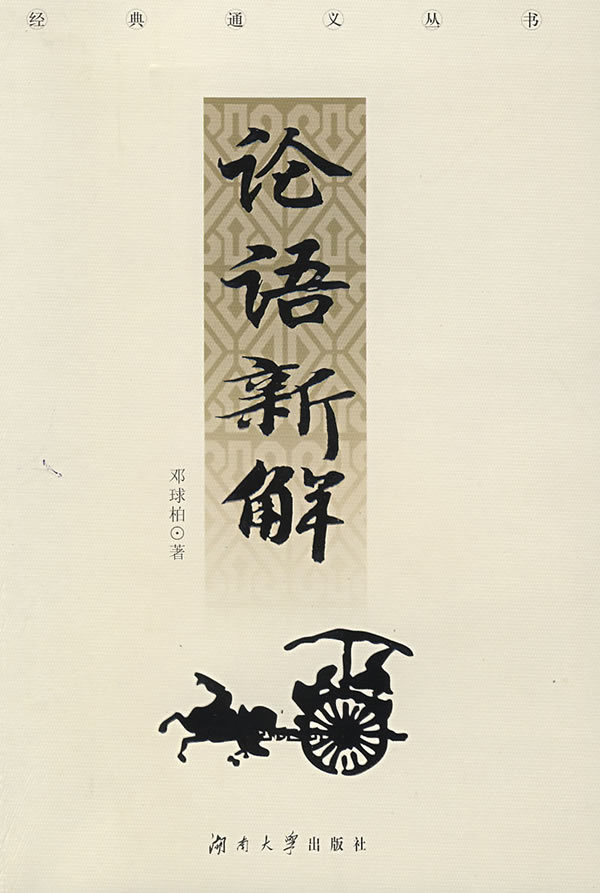 经典通义丛书
论语新解
邓球柏⊙著
湖南大学出版社